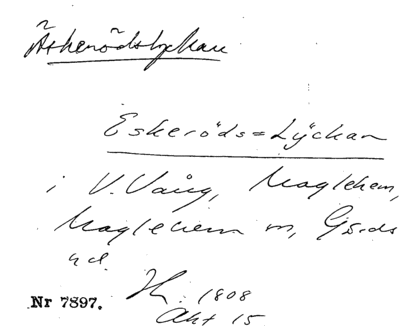 Äskerödslyckan
Eskeröds=Lyckan
i V. Vång, Maglehem,
Maglehem sn, Gärds
hd.
Nr 7897.
1808
Akt 15